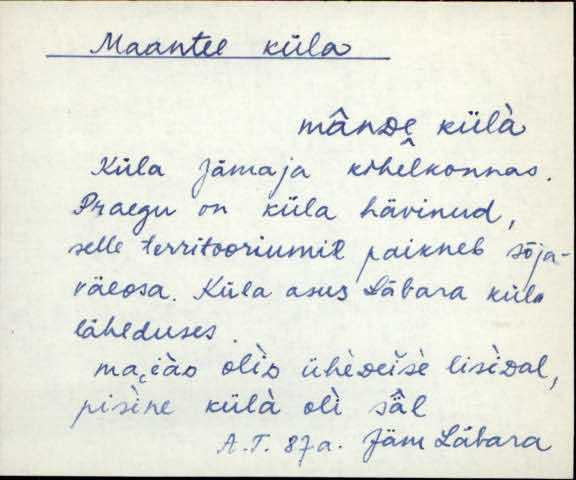 Maantee küla
mânde̬ külà
Küla Jämaja kihelkonnas.
Praegu on küla hävinud,
selle territooriumil paikneb sõja-
väeosa. Küla asus Läbara küla
läheduses.
olìᴅ ühèᴅeìsè lisìᴅal,
pisìne külà olì sä̀l
A.T. 87a. Jäm Läbara